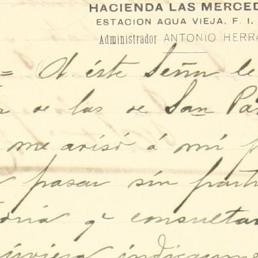 HACIENDA LAS MERCED
ESTACION AGUA VIEJA. F. I.
Administrador ANTONIO HERRA
= A éste Señor le
de las de San Pa
me avisó á mi p
pasar sin parti
oria qe consultar